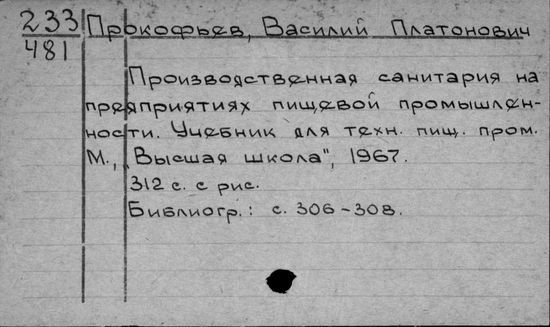 233 Прокофьев, Василий Платонович
481
Производственная санитария на
предприятиях пищевой промышлен-
ности. Учебник для техн. пищ. пром.
М., „Высшая школа", 1967.
312 с. с рис.
Библиогр.: с. 306-308.